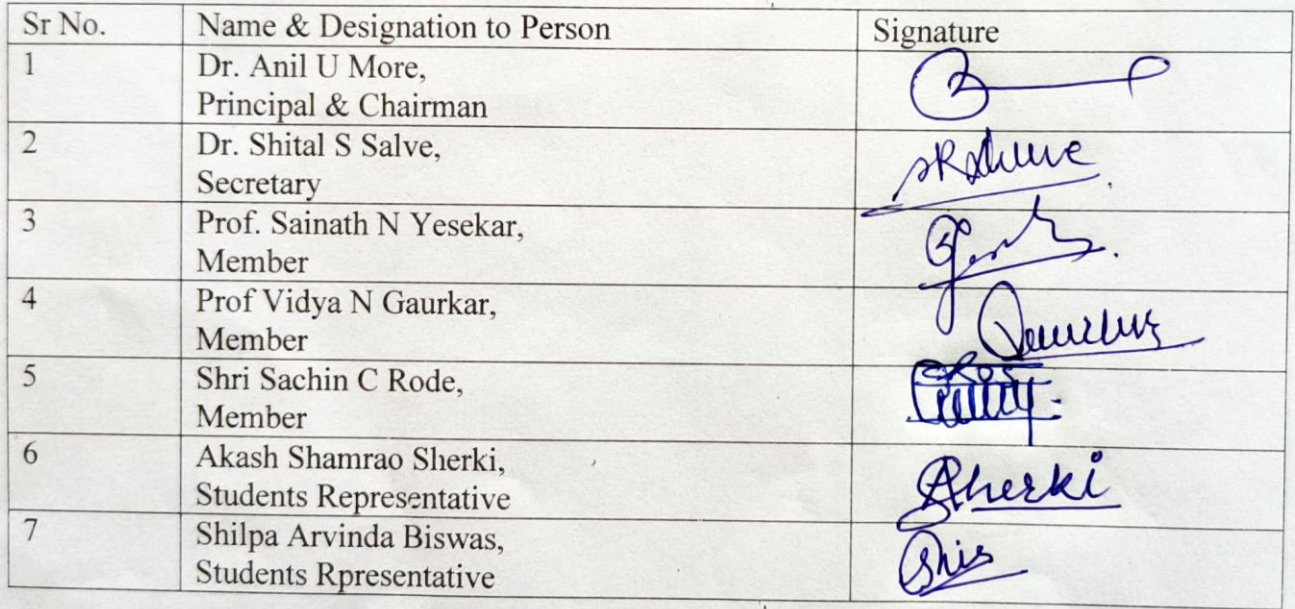 Sr No. Name & Designation to Person Signature
1 Dr. Anil U More,
Principal & Chairman
2 Dr. Shital S Salve,
Secretary
3 Prof. Sainath N Yesekar,
Member
4 Prof Vidya N Gaurkar,
Member
5 Shri Sachin C Rode,
Member
6 Akash Shamrao Sherki,
Students Representative
Sherki
7 Shilpa Arvinda Biswas,
Students Rpresentative